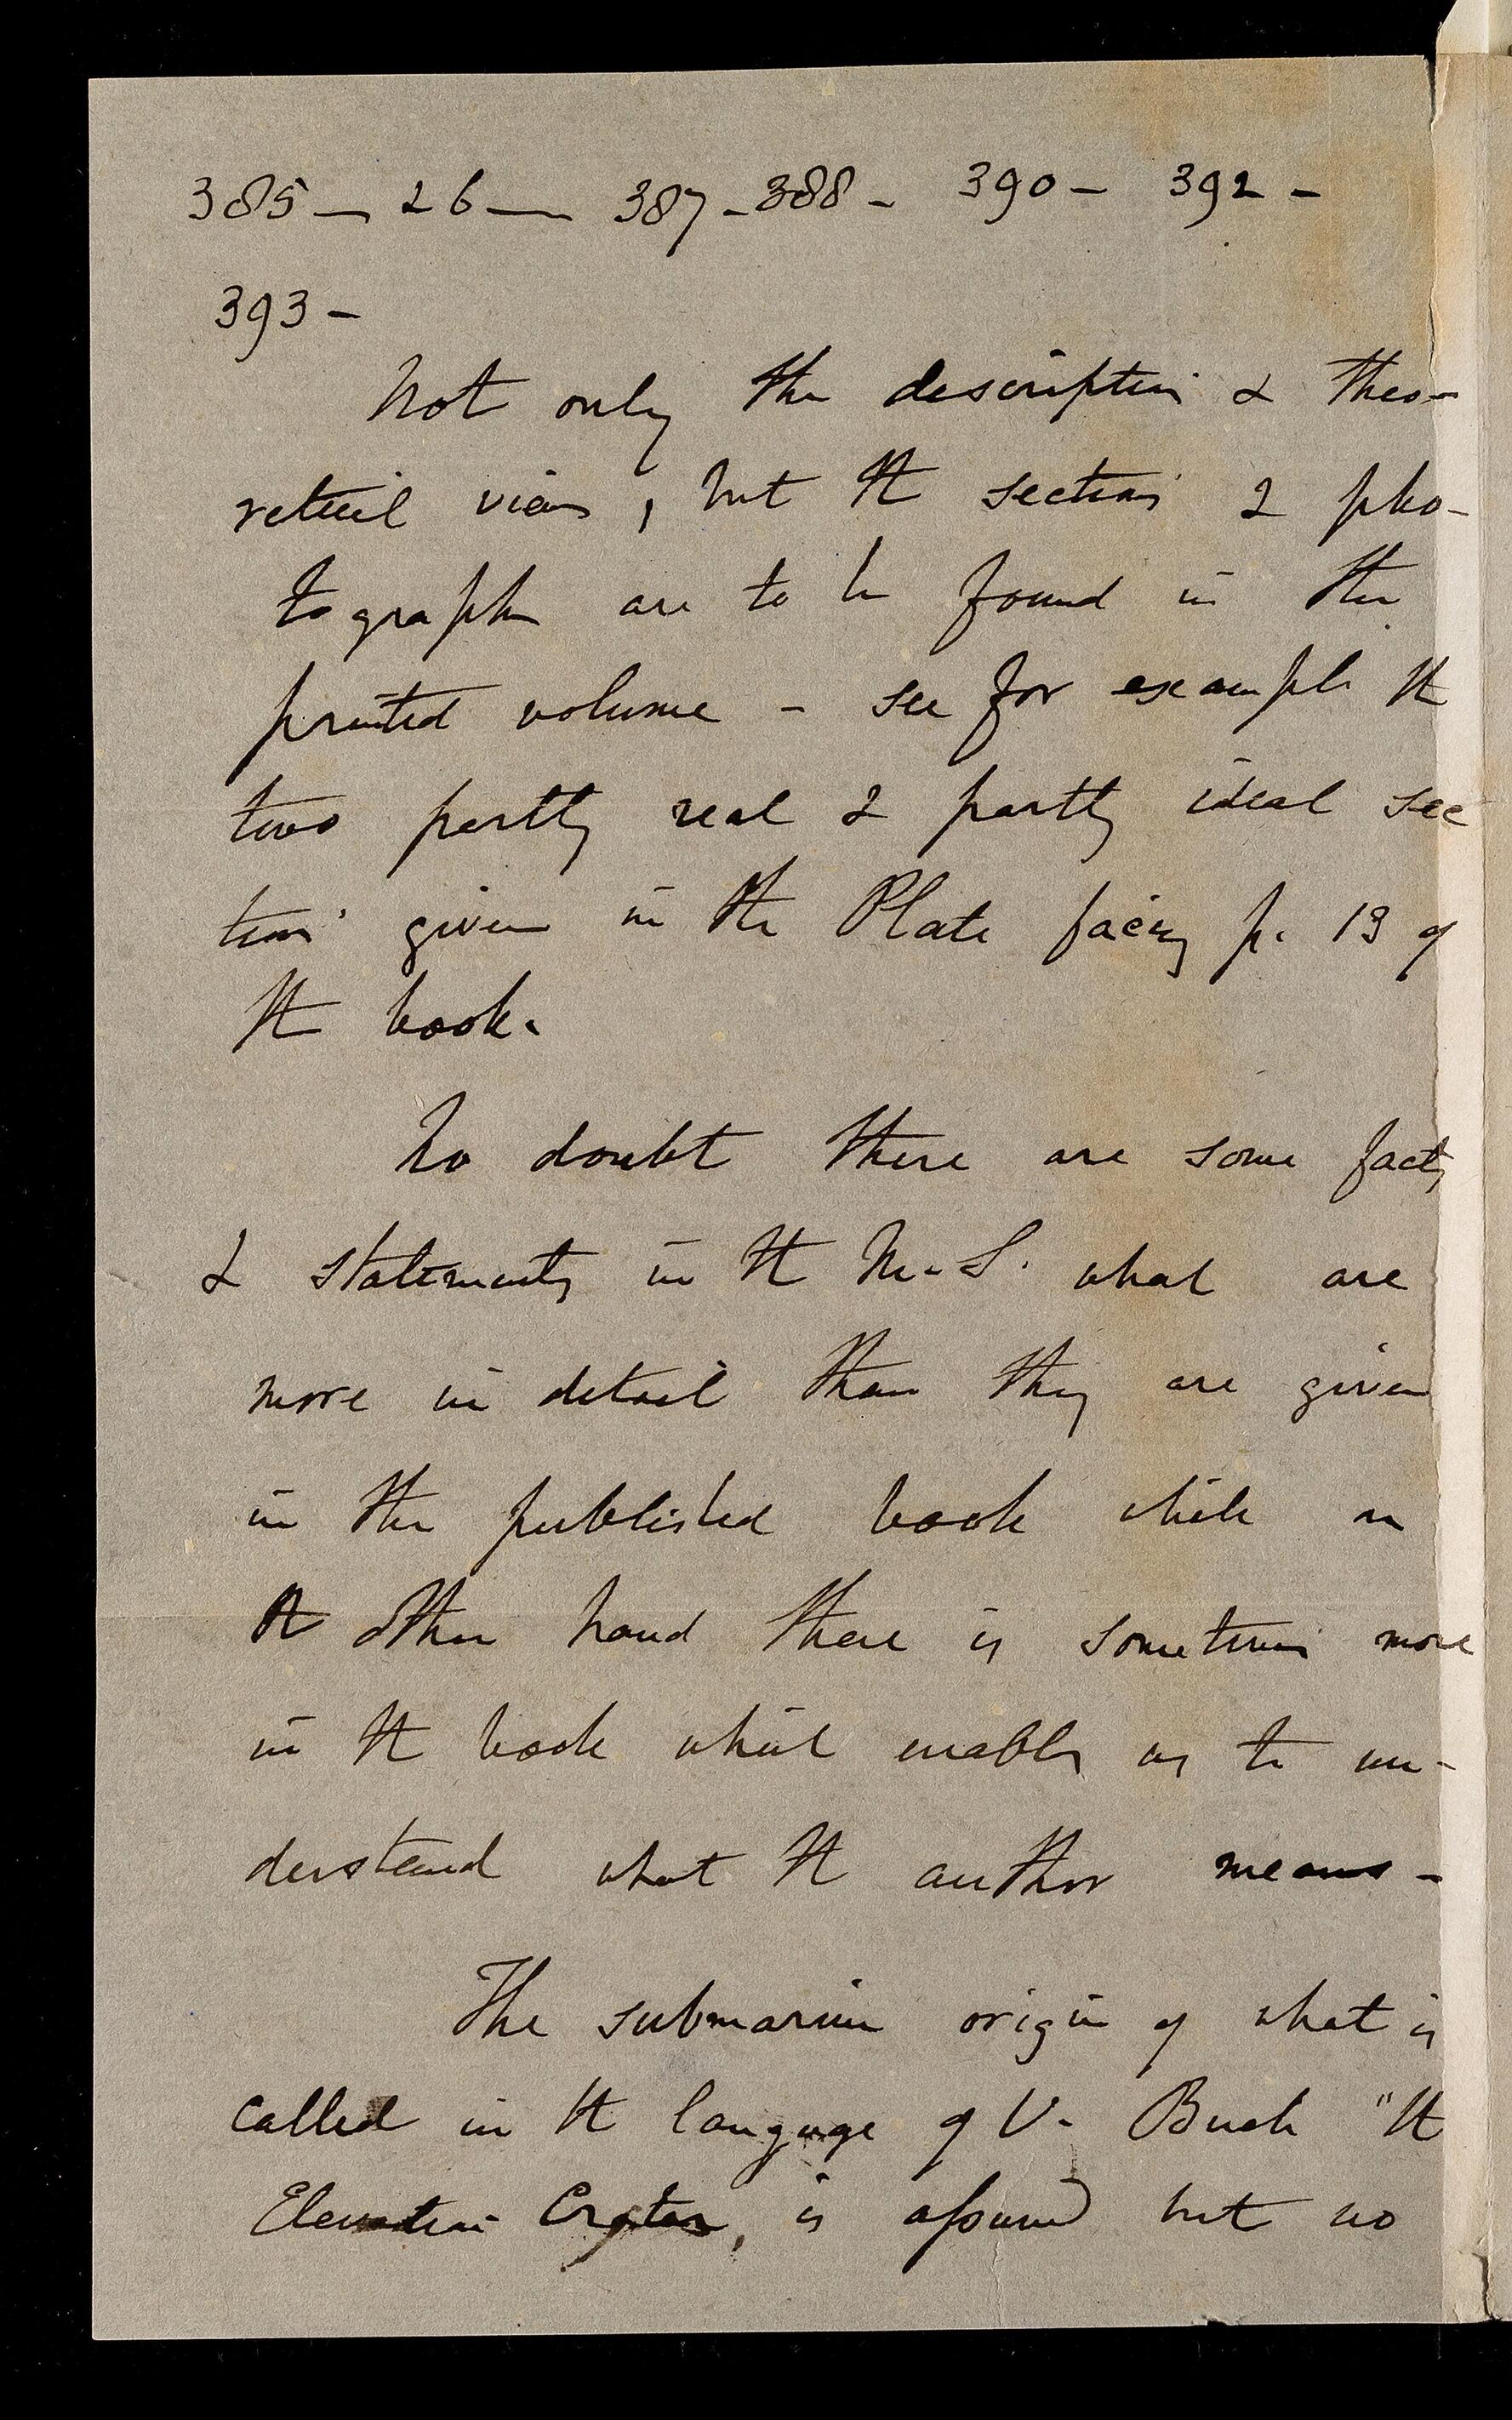 385 — 26 — 387 - 388 - 390 - 392 -
393 -
Not only the description & theo-
retical views, but the sections & pho-
tographs are to be found in the
printed volume - see for example the
two partly real & partly ideal sec
tions given in the Plate facing p. 13 of
the book.
No doubt there are some facts
& statements in the M.S. what are
more in detail than they are given
in the published book while on
the other hand there is sometimes more
in the book which enables us to un-
derstand what the author means -
The submarine origin of what is
called in the language of V. Buch "the
Elevation Crater, is assumed but no